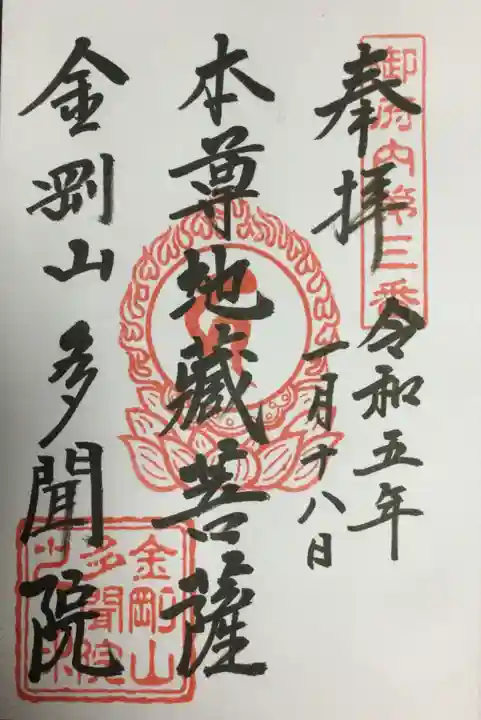 御府内第三番
奉拝
令和五年
一月十八日
本尊地蔵菩薩
金剛山多聞院
金剛山
多聞院